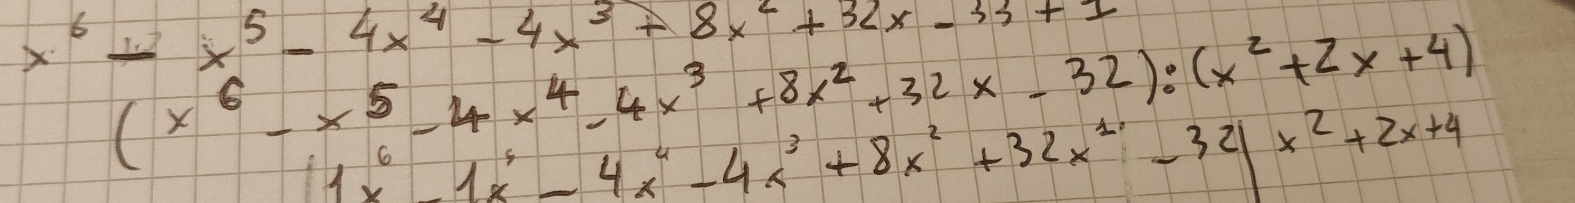 x⁶ - x⁵ - 4x⁴ - 4x³ + 8x² + 32x - 33 + 1
(x⁶ - x⁵ - 4x⁴ - 4x³ + 8x² + 32x - 32):(x² + 2x + 4)
1x⁶ - 1x⁵ - 4x⁴ - 4x³ + 8x² + 32x¹ - 32| x² + 2x + 4